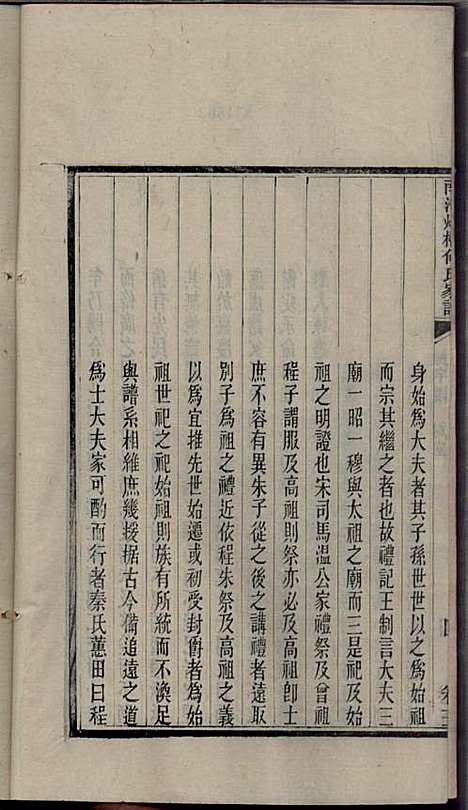 氏家譜
卷三
身始為大夫者其子孫世世以之為始祖
而宗其繼之者也故禮記王制言大夫三
廟一昭一穆與太祖之廟而三是祀及始
祖之明證也宋司馬溫公家禮祭及曾祖
程子謂服及高祖則祭亦必及高祖卽士
庶不容有異朱子從之後之講禮者遠取
別子為祖之禮近依程朱祭及高祖之義
以為宜推先世始遷或初受封爵者為始
祖世祀之祀始祖則族有所統而不渙足
與譜系相維庶幾援据古今備追遠之道
為士大夫家可酌而行者秦氏蕙田曰程